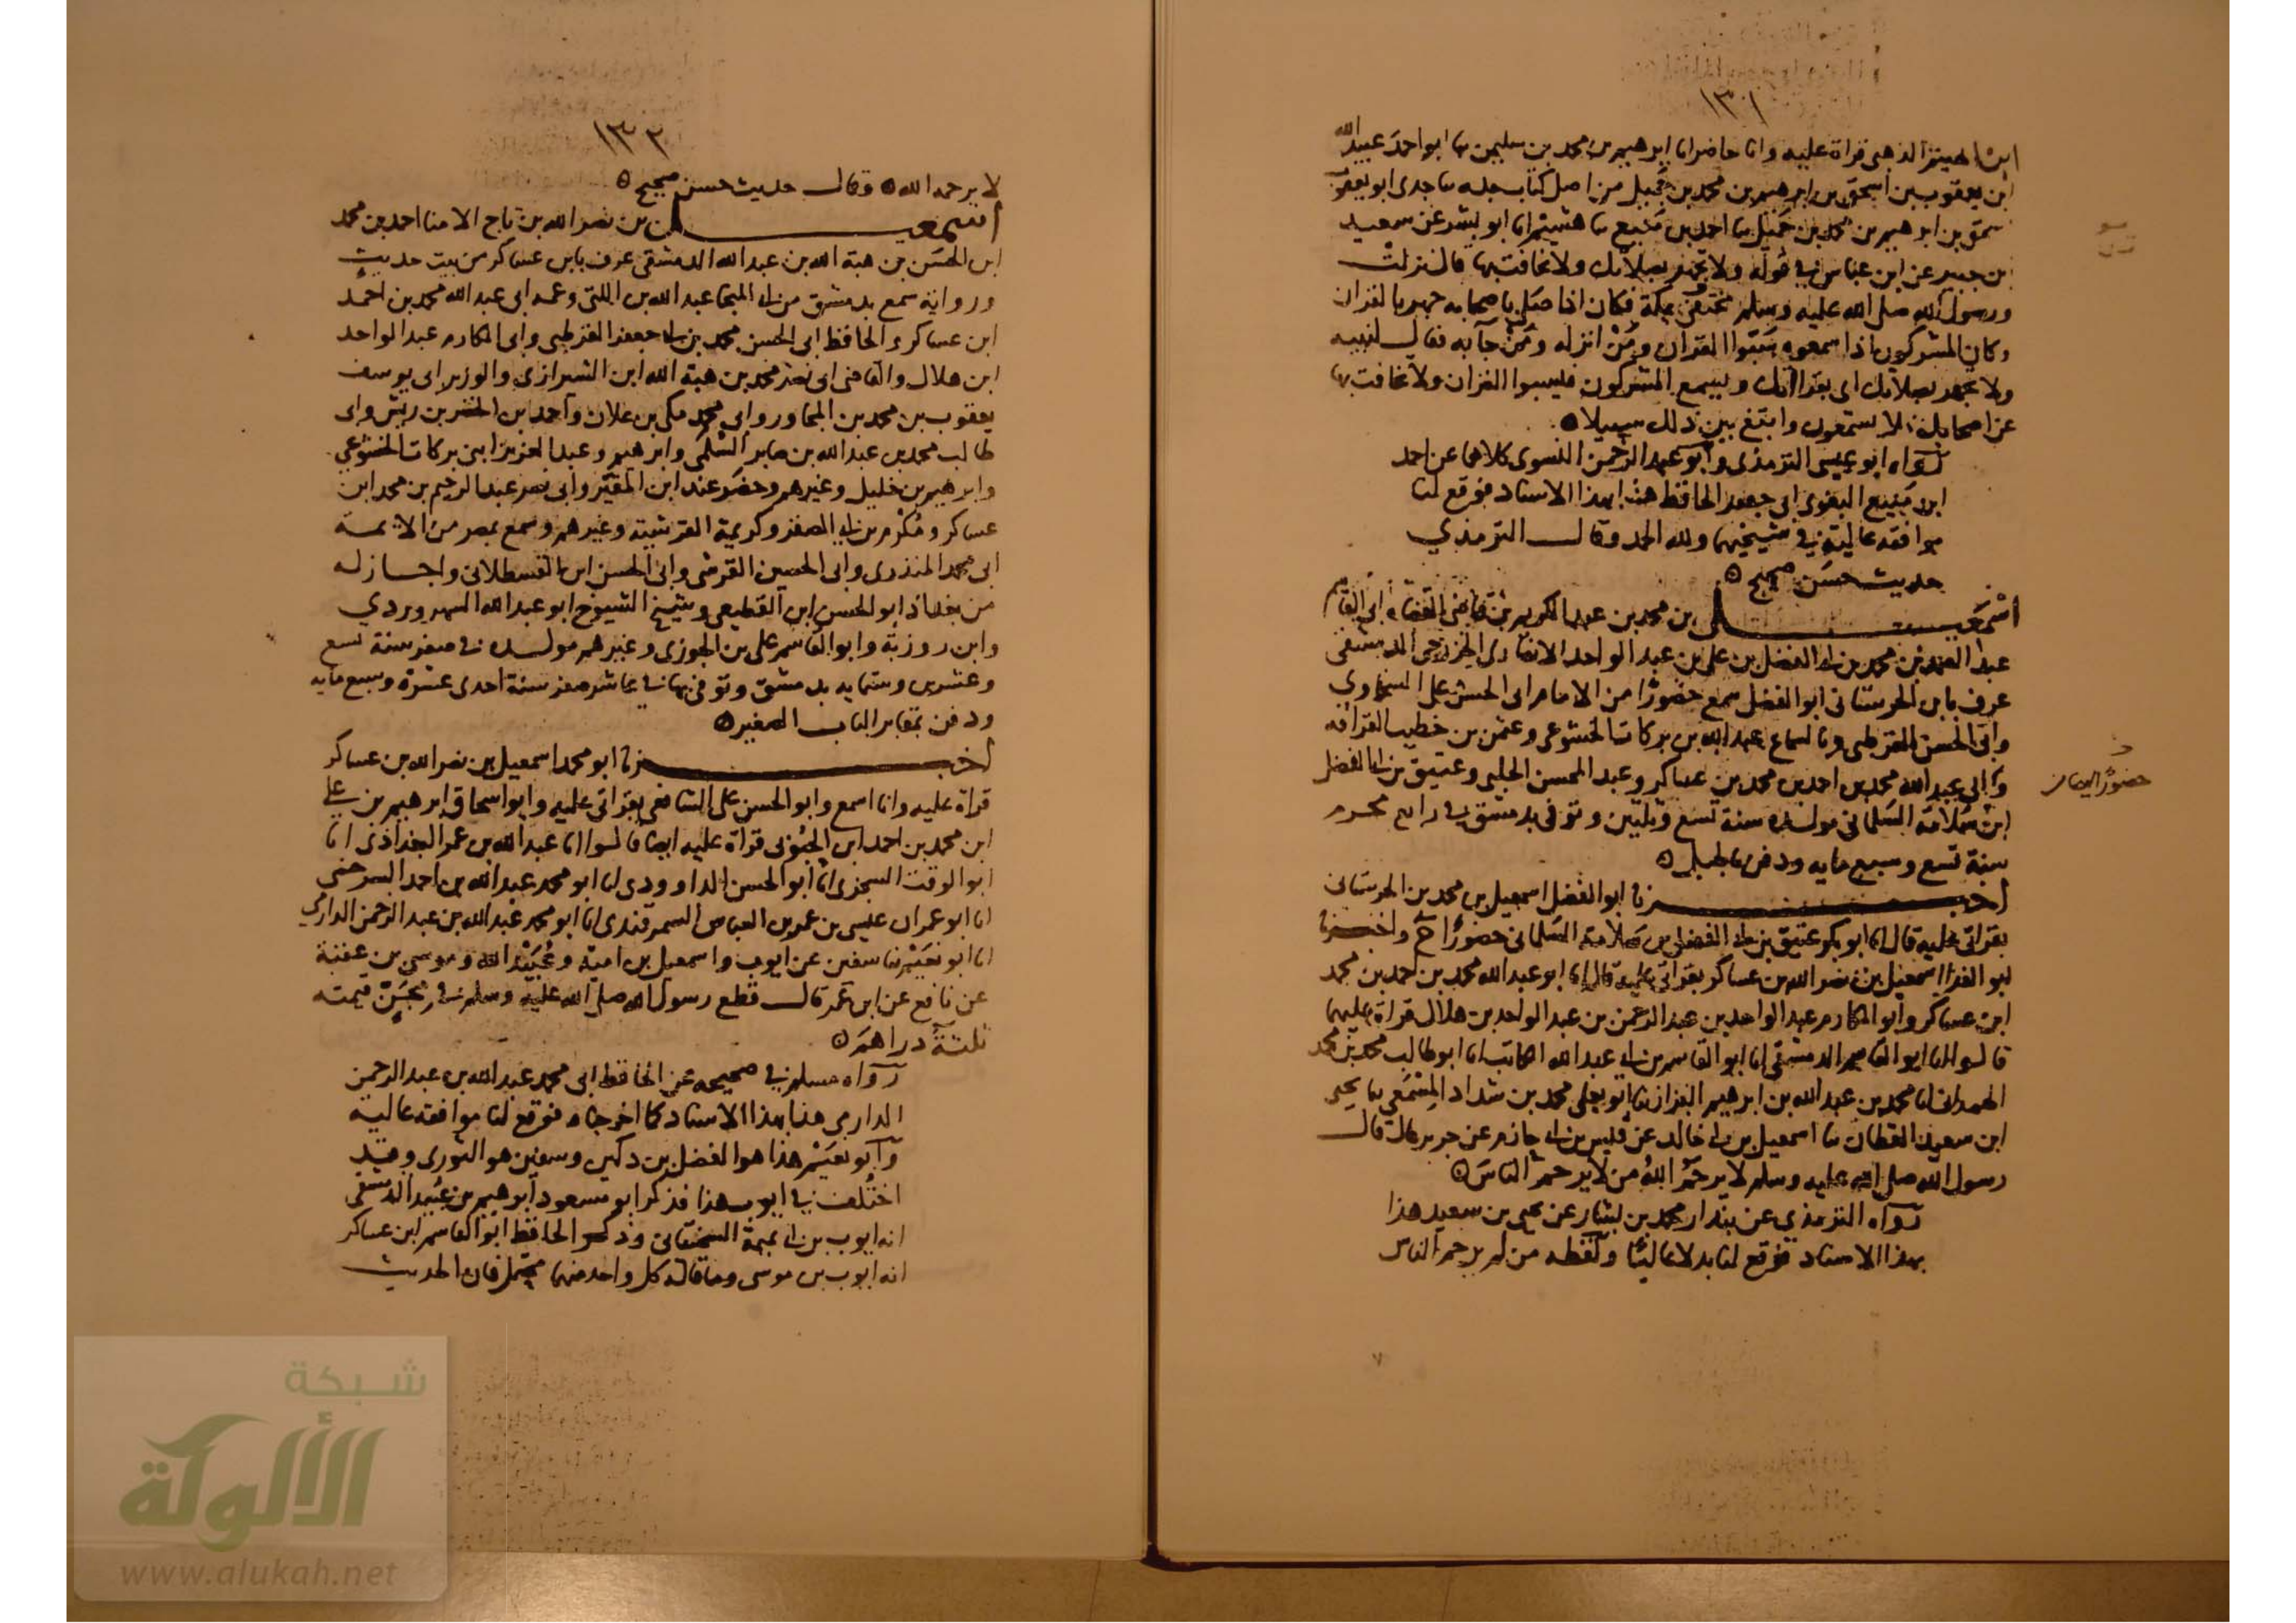 ١٣١
ابن الهيثم الذهبي قراة عليه وانا حاضر انا ابرهيم بن محمد بن سليمن ثنا ابو احمد عبيد الله
ابن يعقوب بن اسحق بن ابرهيم بن محمد بن جميل من اصل كتاب جده ثنا جدي ابو يعقوب
اسحق بن ابرهيم بن محمد بن جميل ثنا احمد بن منيع ثنا هشيم انا ابو بشر عن سعيد
بن جبير عن ابن عباس في قوله ولا تجهر بصلاتك ولا تخافت بها قال نزلت
ورسول الله صلى الله عليه وسلم مختفي بمكة فكان اذا صلى باصحابه جهر بالقران
وكان المشركون اذا سمعوه سبوا القران ومن انزله ومن جآ به فقال لنبيه
ولا تجهر بصلاتك اي بقراتك ويسمع المشركون فيسبوا القران ولا تخافت بها
عن اصحابك فلا يستمعون وابتغ بين ذلك سبيلا ٥
رواه ابو عيسى الترمذي وابو عبد الرحمن النسوي كلاهما عن احمد
ابن منيع البغوي ابي جعفر الحافظ هذا بهذا الاسناد فوقع لنا
موافقة عالية في شيخيهما ولله الحمد وقال الترمذي
حديث حسن صحيح ٥
اسمعيل بن محمد بن عبد الكريم بن قاضي القضاة ابي القاسم
عبد الصمد بن محمد بن ابي الفضل بن علي بن عبد الواحد الانصاري الخزرجي الدمشقي
عرف بابن الحرستاني ابو الفضل سمع حضورا من الامام ابي الحسن علي السخاوي
وابي الحسن القرطبي وبالسماع عبد الله بن بركات الخشوعي وعثمن بن خطيب القرافة
وابي عبد الله محمد بن احمد بن محمد بن عساكر وعبد المحسن الحلبي وعتيق بن ابي الفضل
ابن سلامة السلماني مولده سنة تسع وثلثين وتوفي بدمشق في رابع محرم
سنة تسع وسبع مايه ودفن بالجبل ٥
اخبرنا ابو الفضل اسمعيل بن محمد بن الحرستاني
بقراتي عليه قال انا ابو بكر عتيق بن ابي الفضل بن سلامة السلماني حضورا ح واخبرنا
ابو الفدا اسمعيل بن نصر الله بن عساكر بقراتي عليه قال انا ابو عبد الله محمد بن احمد بن محمد
ابن عساكر وابو المكارم عبد الواحد بن عبد الرحمن بن عبد الواحد بن هلال قراة عليهما
قالوا انا ابو القاسم الدمشقي انا ابو القاسم بن ابي عبد الله الكاتب انا ابو طالب محمد بن محمد
الهمداني انا محمد بن عبد الله بن ابرهيم البزاز ثنا ابو يعلى محمد بن شداد المسمعي ثنا يحيى
ابن سعيد القطان ثنا اسمعيل بن ابي خالد عن قيس بن ابي حازم عن جرير قال قال
رسول الله صلى الله عليه وسلم لا يرحم الله من لا يرحم الناس ٥
رواه الترمذي عن بندار محمد بن بشار عن يحيى بن سعيد هذا
بهذا الاسناد فوقع لنا بدلا عاليا ولفظه من لم يرحم الناس
حضورا ايضا
٧
١٣٢
لا يرحمه الله ٥ وقال حديث حسن صحيح ٥
اسمعيل بن نصر الله بن تاج الامنا احمد بن محمد
ابن الحسن بن هبة الله بن عبد الله الدمشقي عرف بابن عساكر من بيت حديث
ورواية سمع بدمشق من ابي المنجا عبد الله بن اللتي وعمه ابي عبد الله محمد بن احمد
ابن عساكر والحافظ ابي الحسن محمد بن ابي جعفر القرطبي وابي المكارم عبد الواحد
ابن هلال والقاضي ابي نصر محمد بن هبة الله ابن الشيرازي والوزير ابي يوسف
يعقوب بن محمد بن المجاور وابي محمد مكي بن علان واحمد ابن الخضر بن ريش وابي
طالب محمد بن عبد الله بن صابر السلمي وابرهيم وعبد العزيز ابني بركات الخشوعي
وابرهيم بن خليل وغيرهم وحضر عند ابن المقير وابي نصر عبد الرحيم بن محمد ابن
عساكر ومكرم بن ابي الصقر وكريمة القرشية وغيرهم وسمع بمصر من الايمة
ابي محمد المنذري وابي الحسين القرشي وابي الحسن ابن القسطلاني واجاز له
من بغداذ ابو الحسن ابن القطيعي وشيخ الشيوخ ابو عبد الله السهروردي
وابن روزبة وابو القاسم علي بن الجوزي وغيرهم مولده في صفر سنة تسع
وعشرين وستمايه بدمشق وتوفي بها في عاشر صفر سنة احدى عشرة وسبع مايه
ودفن بمقابر الباب الصغير ٥
اخبرنا ابو محمد اسمعيل بن نصر الله بن عساكر
قراة عليه وانا اسمع وابو الحسن علي الشافعي بقراتي عليه وابو اسحاق ابرهيم بن علي
ابن محمد بن احمد ابن الحبوبي قراة عليه ايضا قالوا انا عبد الله بن عمر البغداذي انا
ابو الوقت السجزي انا ابو الحسن الداوودي انا ابو محمد عبد الله بن احمد السرخسي
انا ابو عمران عيسى بن عمر بن العباس السمرقندي انا ابو محمد عبد الله بن عبد الرحمن الدارمي
انا ابو نعيم ثنا سفين عن ايوب واسمعيل بن امية وعبيد الله وموسى بن عقبة
عن نافع عن ابن عمر قال قطع رسول الله صلى الله عليه وسلم في مجن قيمته
ثلثة دراهم ٥
رواه مسلم في صحيحه عن الحافظ ابي محمد عبد الله بن عبد الرحمن
الدارمي هذا بهذا الاسناد كما اخرجناه فوقع لنا موافقة عالية
وابو نعيم هذا هو الفضل بن دكين وسفين هو الثوري وقد
اختلف في ايوب هذا فذكر ابو مسعود ابرهيم بن عبيد الدمشقي
انه ايوب بن ابي تميمة السختياني وذكر الحافظ ابو القاسم ابن عساكر
انه ايوب بن موسى وما قاله كل واحد منهما محتمل فان الحديث
شبكة
الألوكة
www.alukah.net